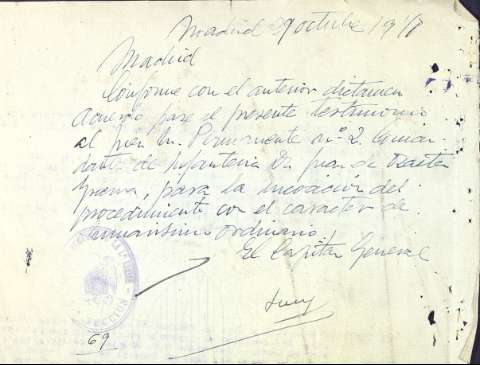 Madrid 9 octubre 19
Madrid
Conforme con el anterior dictamen
Acuerdo pase el presente testimonio
al Juez M. Permanente nº 2. Coman-
dante de Infantería Dn Juan de
Guerra, para la incoación del
procedimiento con el caracter de
sumarisimo ordinario.
El Capitan General
69